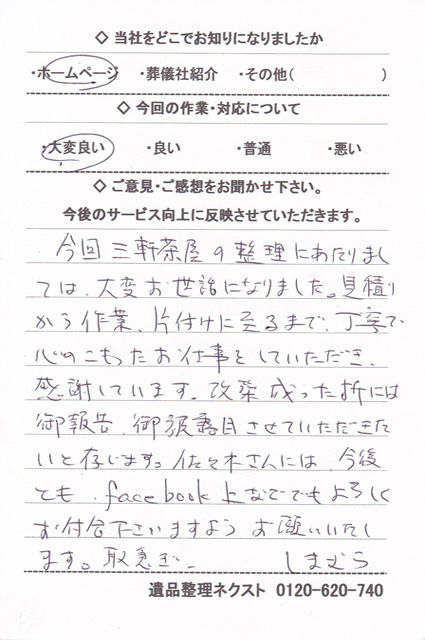 ◇ 当社をどこでお知りになりましたか
・ホームページ ・葬儀社紹介 ・その他( )
◇ 今回の作業・対応について
・大変良い ・良い ・普通 ・悪い
◇ ご意見・ご感想をお聞かせ下さい。
今後のサービス向上に反映させていただきます。
今回三軒茶屋の整理にあたりまし
ては、大変お世話になりました。見積り
から作業、片付けに至るまで、丁寧で
心のこもったお仕事をしていただき、
感謝しています。改築成った折には
御報告、御披露目させていただきた
いと存じます。佐々木さんには、今後
とも、facebook上などでもよろしく
お付合下さいますようお願いいたし
ます。取急ぎ、 しまむら
遺品整理ネクスト 0120-620-740